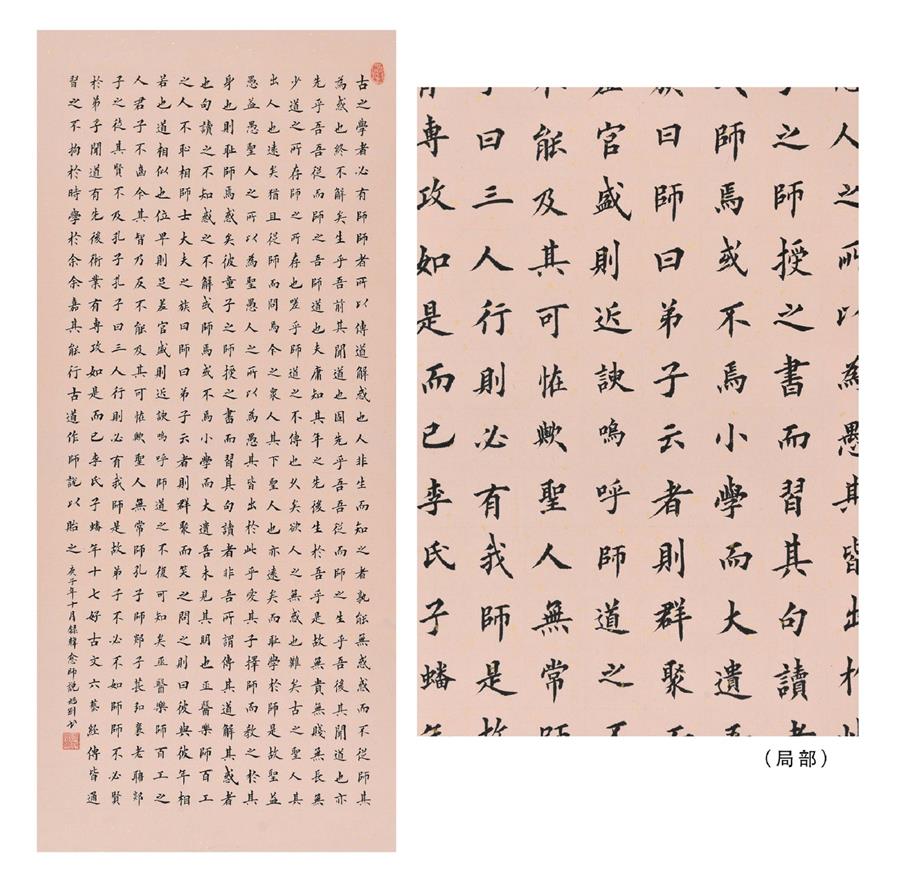 古之學者必有師師者所以傳道解惑也人非生而知之者孰能無惑惑而不從師其
為惑也終不解矣生乎吾前其聞道也固先乎吾吾從而師之生乎吾後其聞道也亦
先乎吾吾從而師之吾師道也夫庸知其年之先後生於吾乎是故無貴無賤無長無
少道之所存師之所存也嗟乎師道之不傳也久矣欲人之無惑也難矣古之聖人其
出人也遠矣猶且從師而問焉今之衆人其下聖人也亦遠矣而耻學於師是故聖益
愚益愚聖人之所以為聖愚人之所以為愚其皆出於此乎愛其子擇師而教之於其
身也則耻師焉惑矣彼童子之師授之書而習其句讀者非吾所謂傳其道解其惑者
也句讀之不知惑之不解或師焉或不焉小學而大遺吾未見其明也巫醫樂師百工
之人不恥相師士大夫之族曰師曰弟子云者則群聚而笑之問之則曰彼與彼年相
若也道相似也位卑則足羞官盛則近諛嗚呼師道之不復可知矣巫醫樂師百工之
人君子不齒今其智乃反不能及其可恠歟聖人無常師孔子師郯子萇弘襄老聃郯
子之徒其賢不及孔子孔子曰三人行則必有我師是故弟子不必不如師師不必賢
於弟子聞道有先後術業有專攻如是而已李氏子蟠年十七好古文六藝經傳皆通
習之不拘於時學於余余嘉其能行古道作師說以貽之
庚子年十月錄韓愈師說
人之所以為愚其皆出於
之師授之書而習其句讀者
師焉或不焉小學而大遺
曰師曰弟子云者則群聚
官盛則近諛嗚呼師道之不
能及其可恠歟聖人無常師
曰三人行則必有我師是故
專攻如是而已李氏子蟠年
（局部）